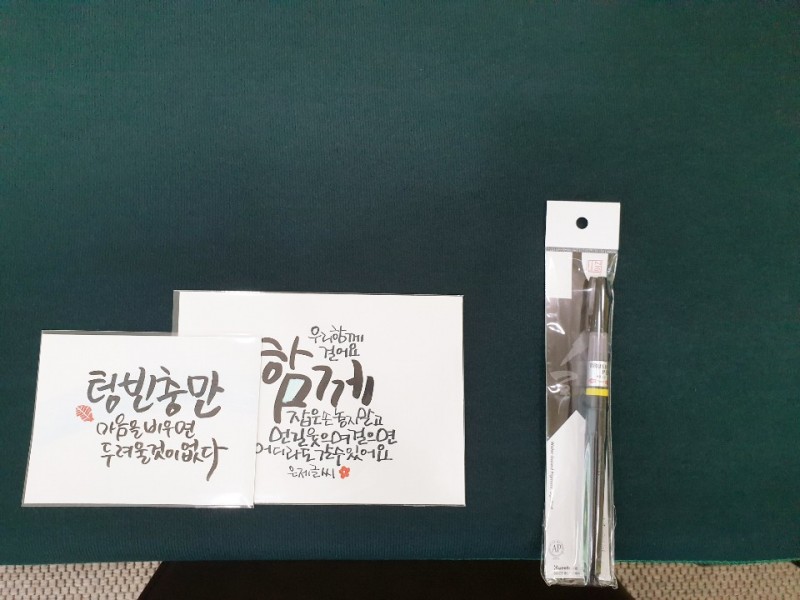 텅빈충만
마음을비우면
두려울것이없다
우리함께
걸어요
함께
잡은손놓지말고
먼길웃으며걸으면
어디라도갈수있어요
은제글씨
AP